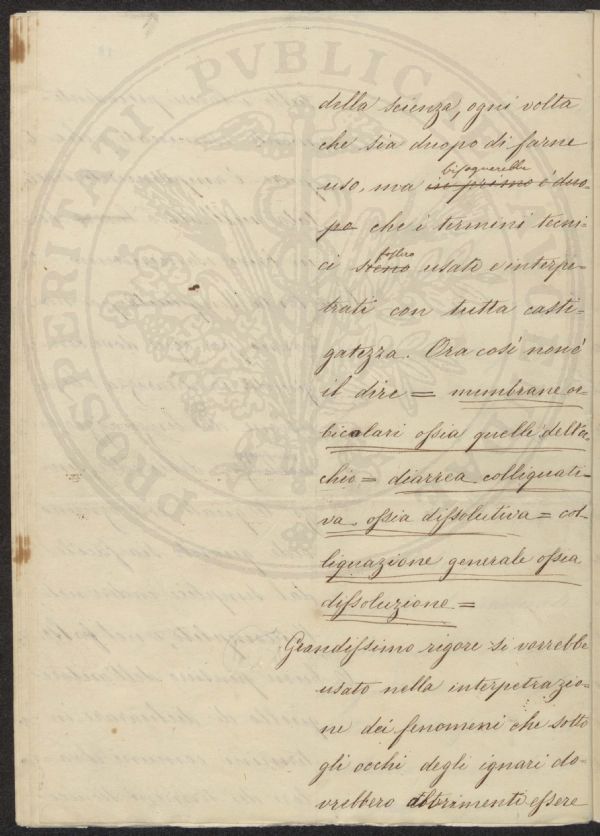 della scienza, ogni volta
che sia duopo di farne
bisognerebbe
uso, ma è duo-
po che i termini tecni-
fossero
ci sieno usati e interpe-
trati con tutta casti-
gatezza. Ora così non è
il dire = membrane or-
bicolari ossia quelle dell'oc-
chio = diarrea colliquati-
va, ossia dissolutiva = col-
liquazione generale ossia
dissoluzione =
Grandissimo rigore si vorrebbe
usato nella interpetrazio-
ne dei fenomeni che sotto
gli occhi degli ignari do-
vrebbero altrimenti essere
PROSPERITATI PVBLICAE